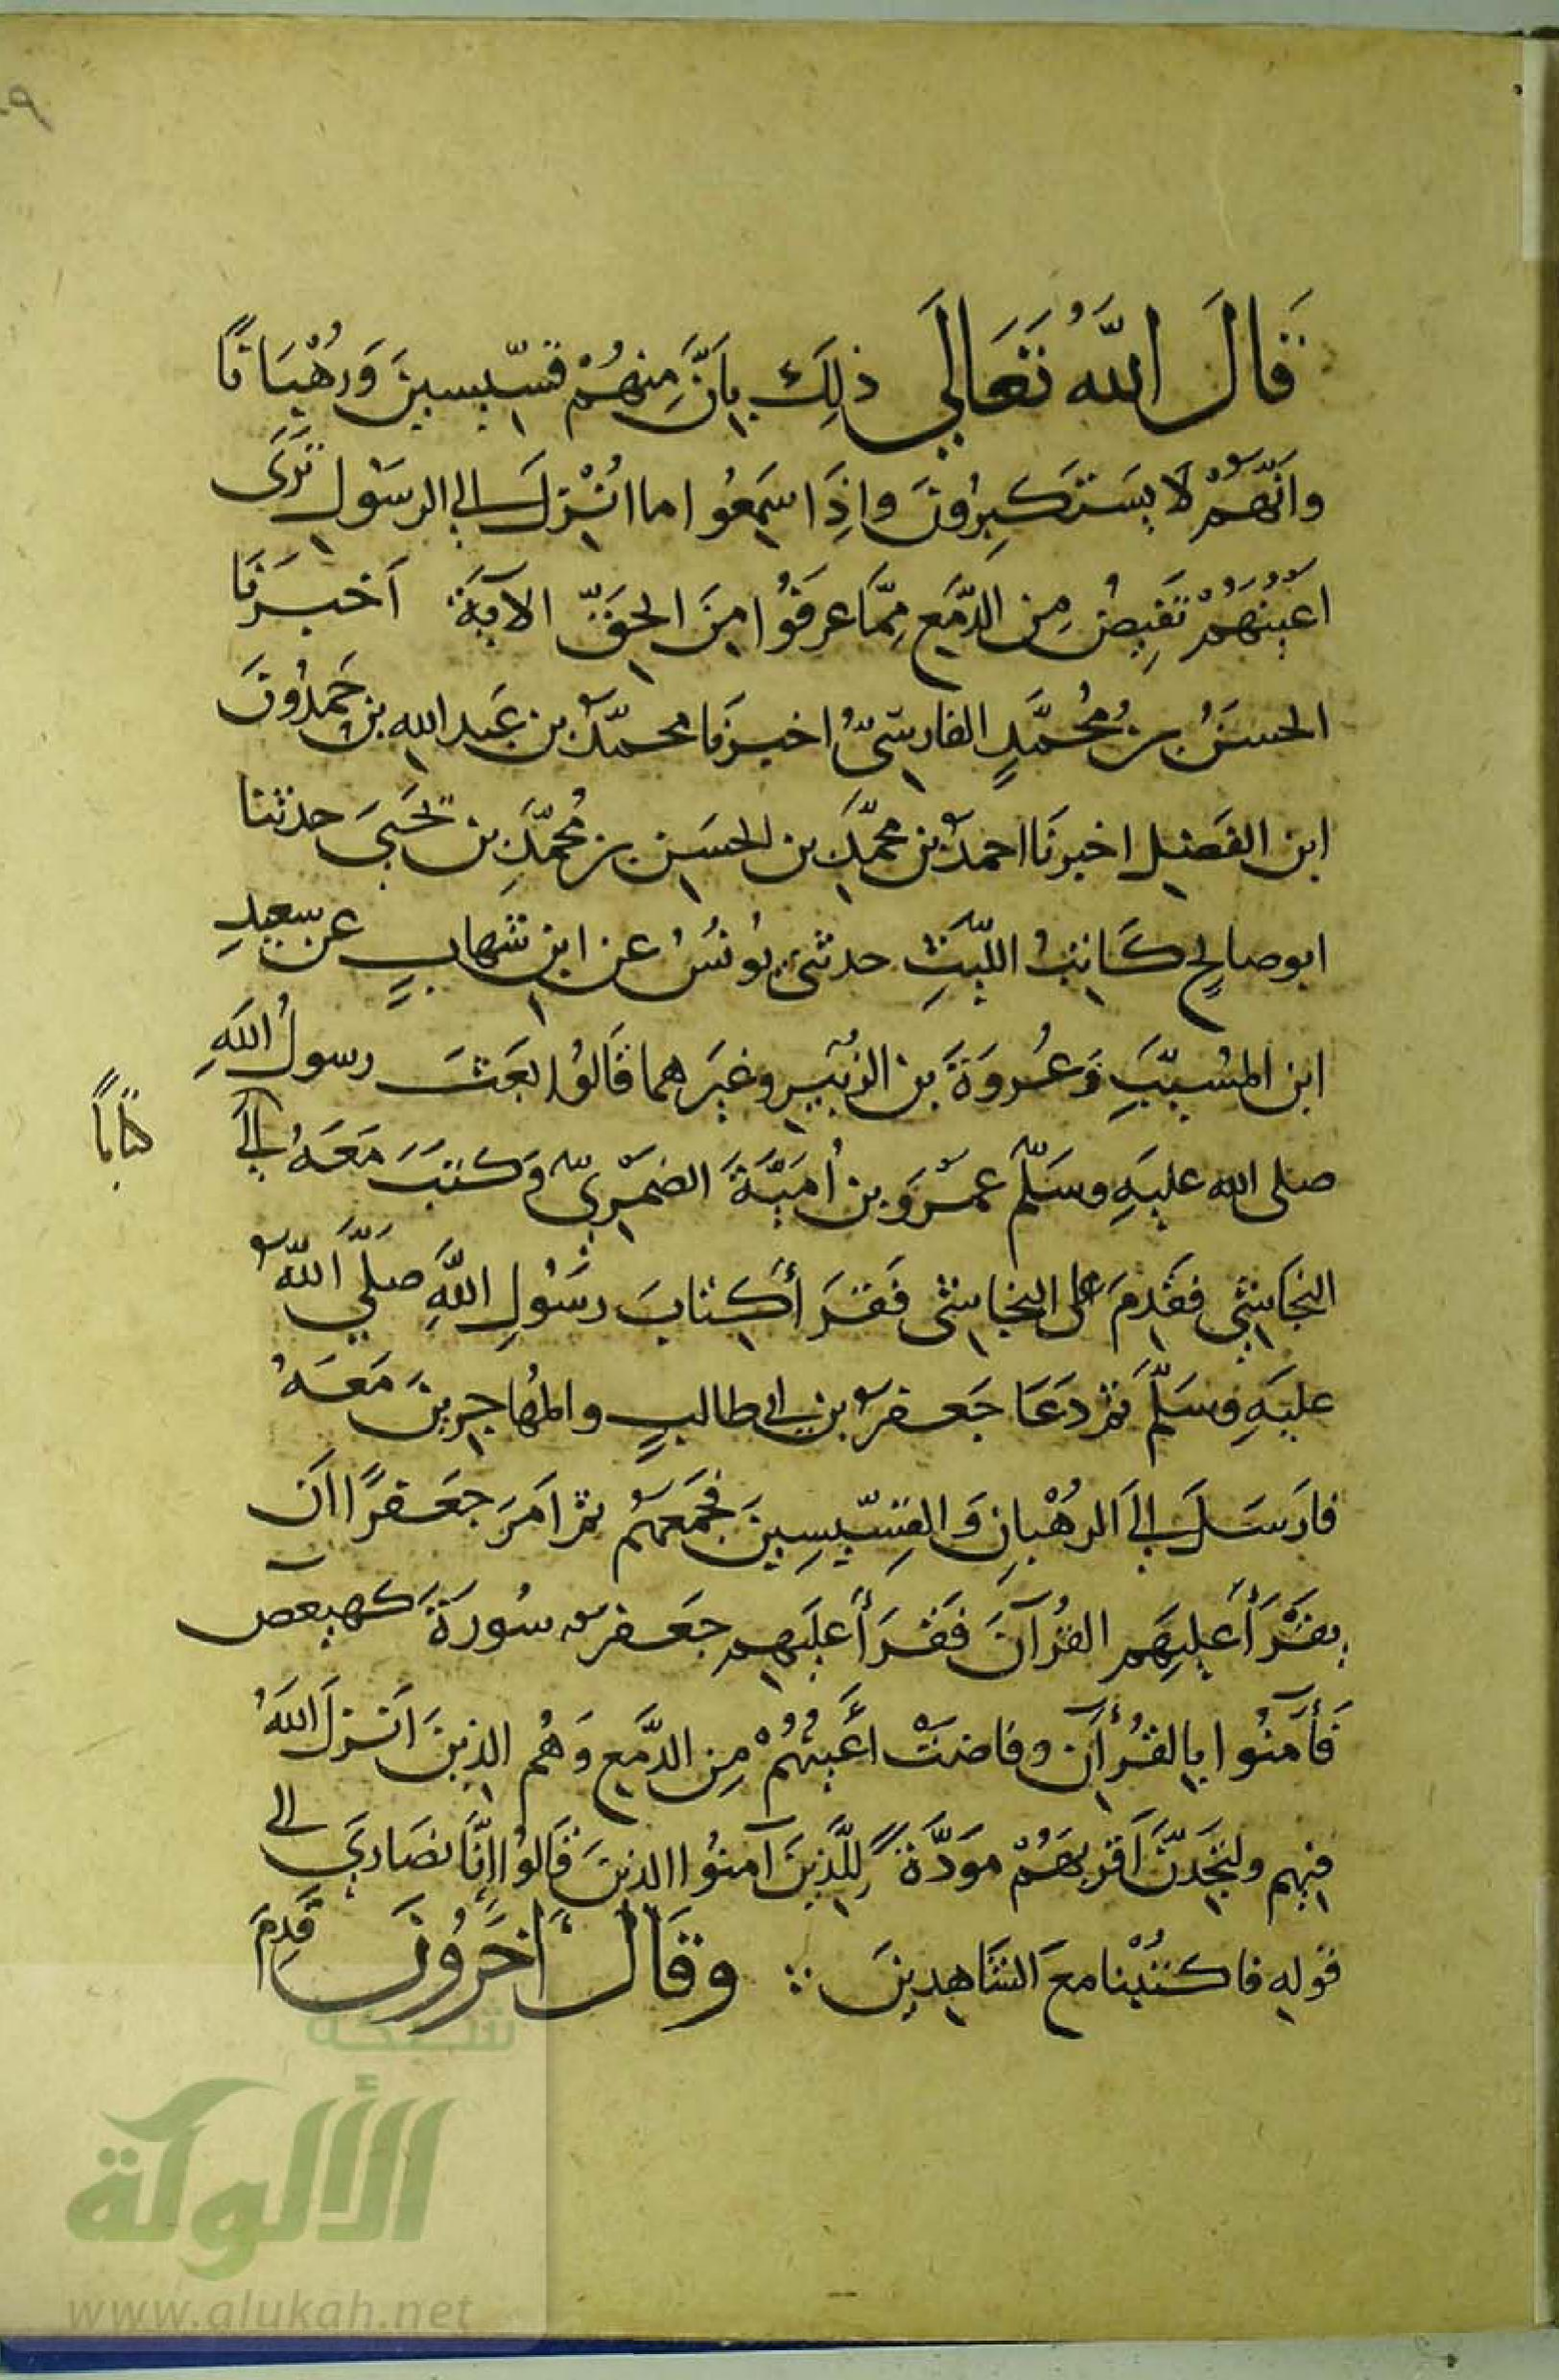 قَالَ اللَّهُ تَعَالَى ذلِكَ بِأَنَّ مِنهُمْ قِسّيسينَ وَرُهْبَانًا
وَأَنَّهُمْ لَا يَستَكبِرُونَ وَإِذَا سَمِعُوا ما انْزِلَ إلى الرسُولِ تَرَى
اعْيُنَهُمْ تَفِيضُ مِن الدَّمعِ مِمَّا عَرفُوا مِنَ الحَقِّ الآيَةَ أَخبَرَنَا
الحسَنُ بنُ مُحمَّدٍ الفارسىُّ اخبرَنا محمّدُ بن عَبد الله بن حَمدُونَ
ابن الفَضلِ اخبرنَا احمدُ بن محمَّدِ بن الحسَنِ بن مُحمَّدِ بن يَحَيَى حدثنا
ابو صالحٍ كَاتبُ اللّيثِ حدثنى يُونسُ عن ابن شهابٍ عن سعيدِ
ابن المسُيّبِ وَعُروَةَ بن الزبَيرِ وغيَرهما قَالوُا بَعَثَ رسولُ اللَّهِ
صلى الله عليهِ وسَلّمَ عمْرَو بن أُميَّةَ الضمْرِيَّ وَكتبَ مَعَهُ إلَى
كتاباً
النجَاشِي فقَدِمَ على النجاشى فَقَرَأَ كِتابَ رسُولِ اللَّهِ صَلَّى اللَّهُ
عليَهِ وسَلَّمَ ثم دَعَا جَعفرَ بن ابى طالبٍ والمهُاجرِينَ مَعَهُ
فارسَلَ إلى الرُهْبانِ وَالقِسّيسِينَ فجَمَعَهُم ثم امَرَ جعَفرًا ان
يقَرَأَ عليهَم القُرآنَ فَقَرَأَ عليَهِم جَعفرٌ سُورَةَ كهيعص
فَأَمَنُوا بالقُرْآنِ وفاضَتْ أَعيُنُهُمْ مِن الدَّمعِ وَهُم الذينَ انزلَ اللَّهُ
فيهِم ولتجَدِنَّ أَقرَبهَمُ مَوَدَّةً لِلَّذِينَ آمنُوا الذينَ قَالوُا إِنَّا نصَارَى الى
قولِهِ فاكتُبْنا معَ الشَاهِدِينَ وقَالَ آخَرُونَ قَدِمَ
شبكة
الألوكة
www.alukah.net